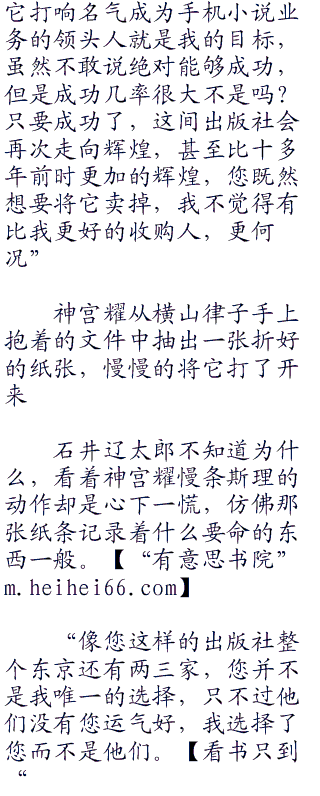 它打响名气成为手机小说业
务的领头人就是我的目标，
虽然不敢说绝对能够成功，
但是成功几率很大不是吗？
只要成功了，这间出版社会
再次走向辉煌，甚至比十多
年前时更加的辉煌，您既然
想要将它卖掉，我不觉得有
比我更好的收购人，更何
况”
神宫耀从横山律子手上
抱着的文件中抽出一张折好
的纸张，慢慢的将它打了开
来
石井辽太郎不知道为什
么，看着神宫耀慢条斯理的
动作却是心下一慌，仿佛那
张纸条记录着什么要命的东
西一般。【“有意思书院”
m.heihei66.com】
“像您这样的出版社整
个东京还有两三家，您并不
是我唯一的选择，只不过他
们没有您运气好，我选择了
您而不是他们。【看书只到
“